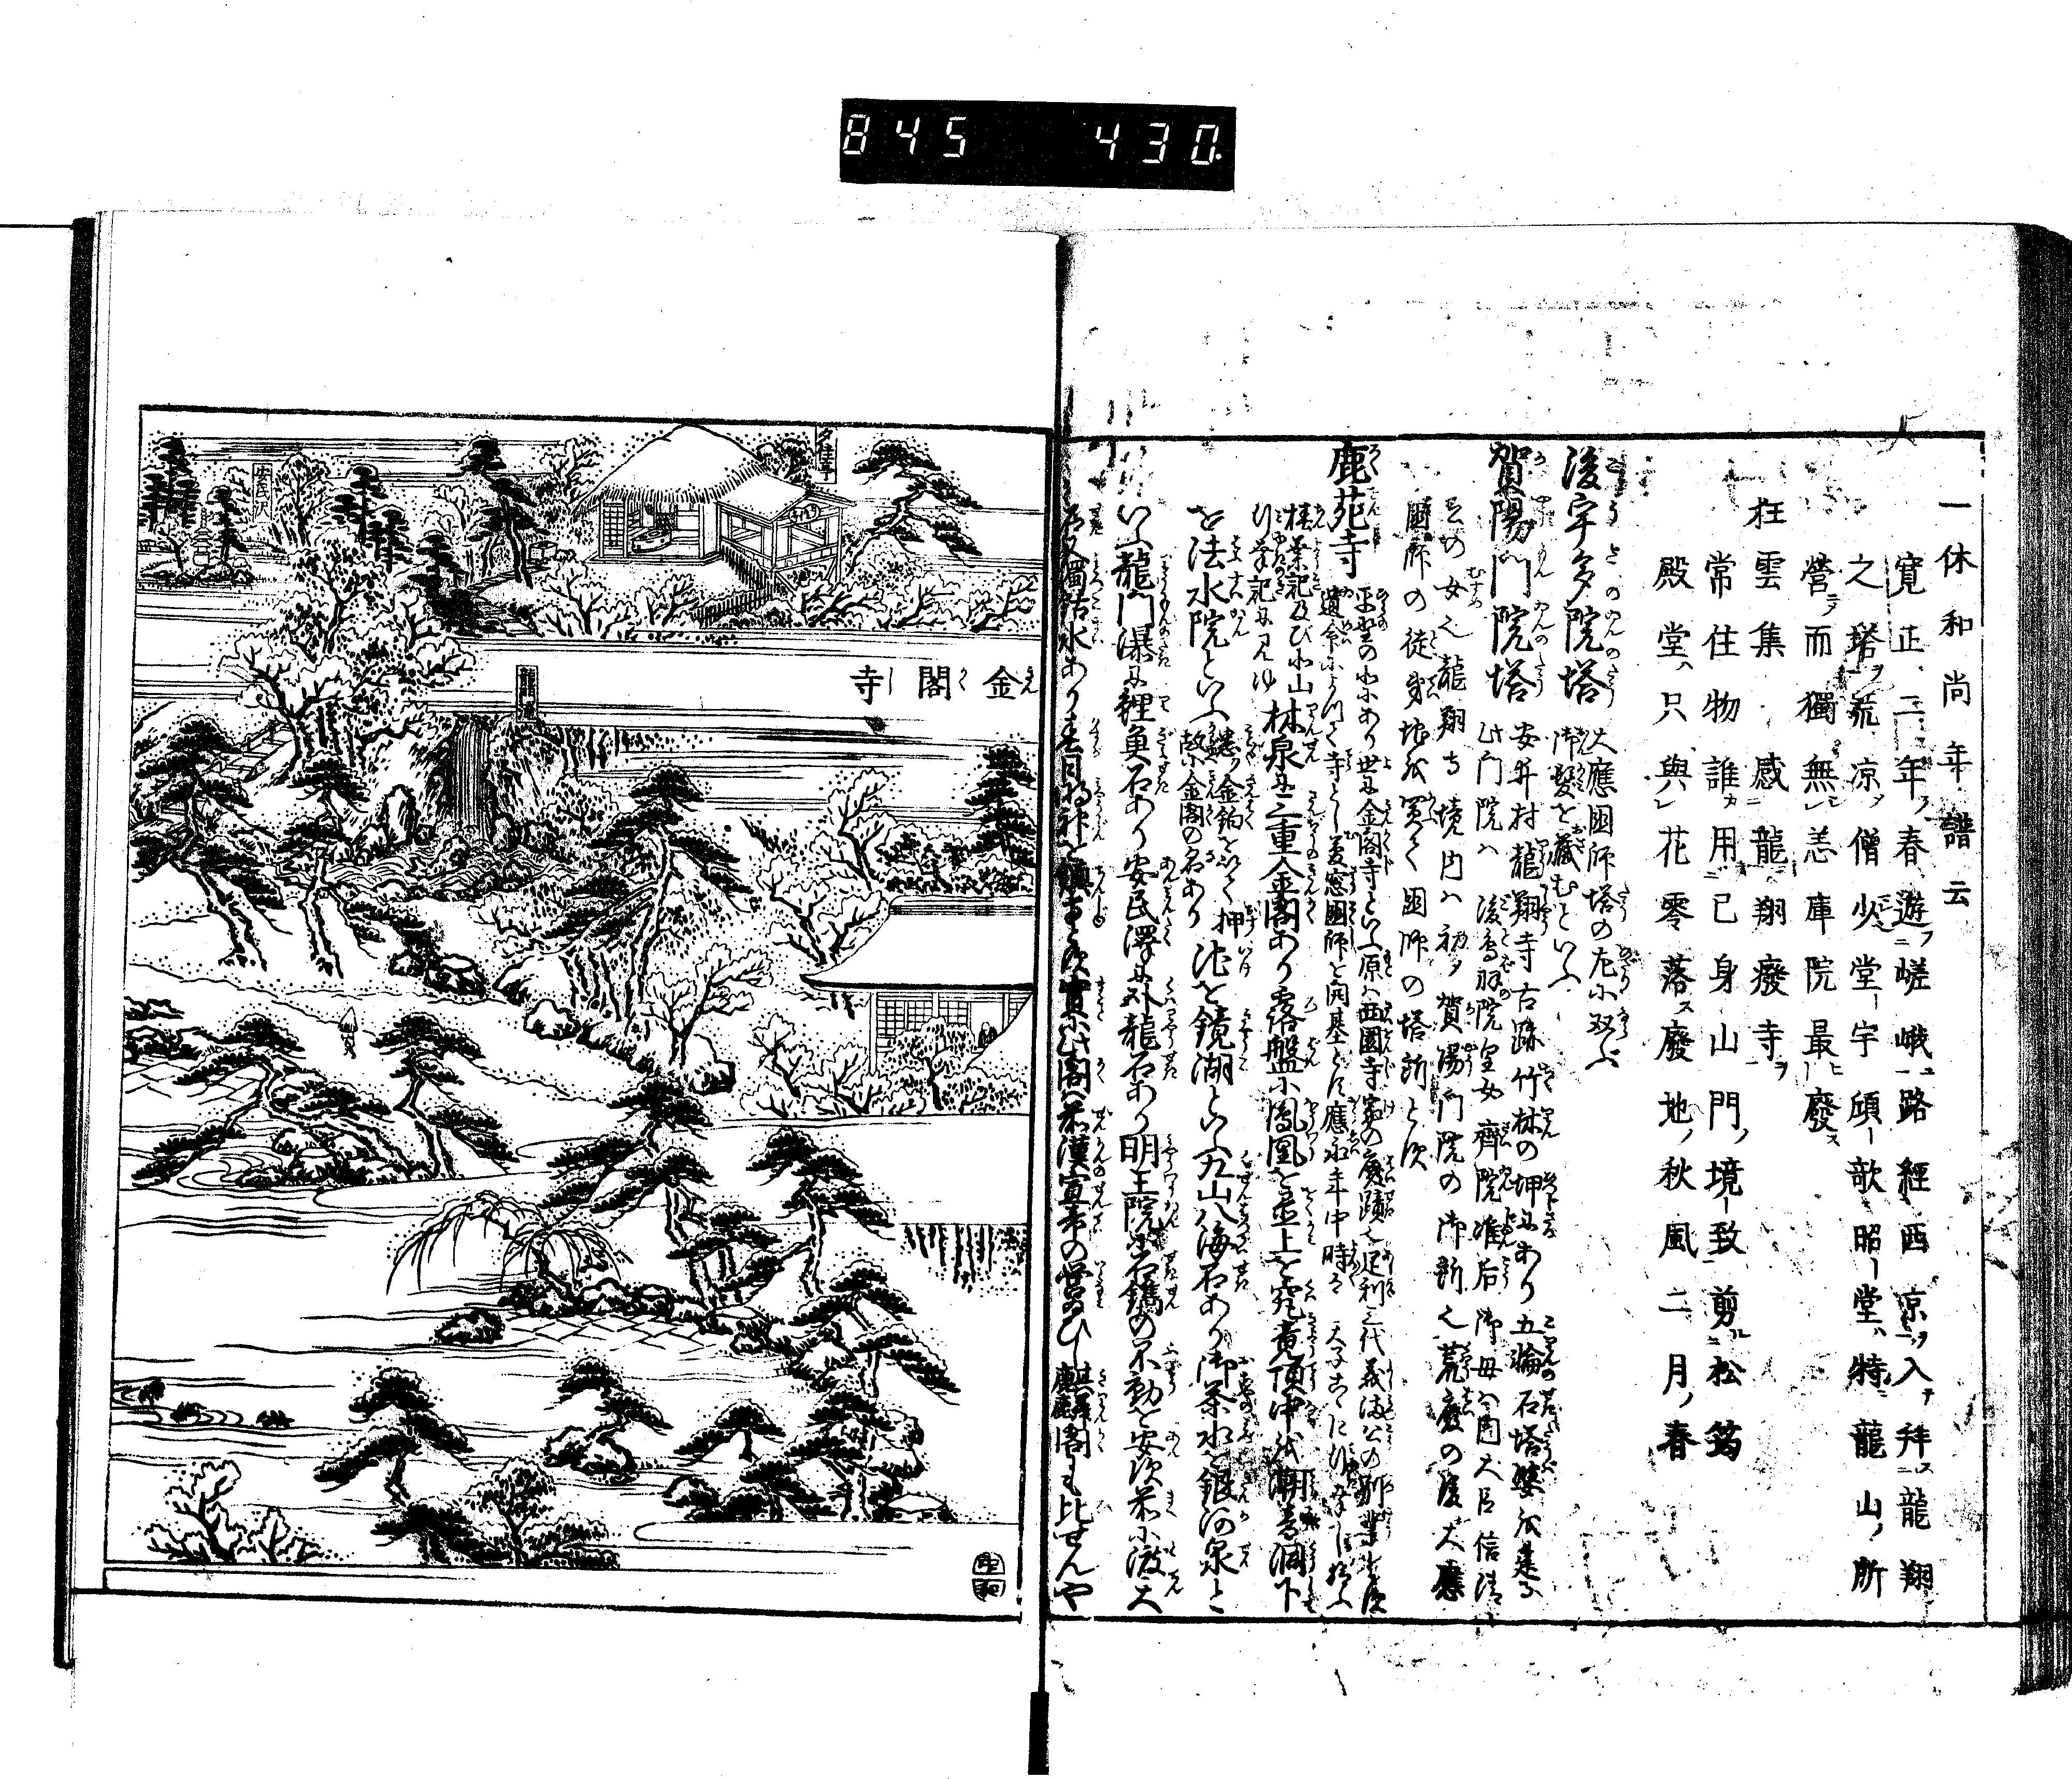 845 430
一休和尚年譜云
寛正二年春遊嵯峨路經西京入拜龍翔
之塔荒凉僧少堂宇頽歌昭堂特龍山所
營而獨無恙庫院最廢
狂雲集 感龍翔廢寺
常住物誰用己身山門境致剪松筠
殿堂只與花零落廢地秋風二月春
後宇多院塔 大應國師塔の左に双ぶ
御髪を藏むといふ
賀陽門院塔 安井村龍翔寺古跡竹林の坤にあり五輪石塔婆を建る
此門院ハ後鳥羽院皇女齊院准后御母ハ内大臣信清
公の女也龍翔寺境内ハ初メ賀陽門院の御所也荒廢の後大應
國師の徒弟地を買て國師の塔所とす
鹿苑寺
平野の北にあり世に金閣寺といふ原ハ西園寺家の廢蹟也足利三代義満公の別業とす
遺命によつて寺とし夢窓國師を開基とす應永年中時の天子こゝに行幸し給ふ
椿葉記及び北山
行幸記に見ゆ
林泉に三重金閣あり露盤に鳳凰を置上を究竟頂中を潮音洞下
を法水院といふ
悉ク金箔を以て押
故に金閣の名あり
池を鏡湖といふ九山八海石あり御茶水を銀河泉と
いふ龍門瀑に鯉魚石あり安民澤に外龍石あり明王院に石鐫の不動を安ず茶に澂む
名又獨鈷水あり春日明神を鎮守とす實に此閣ハ前漢宣帝の營給ひし麒麟閣にも比せんや
金閣寺
夕佳亭
安民沢
龍門瀧